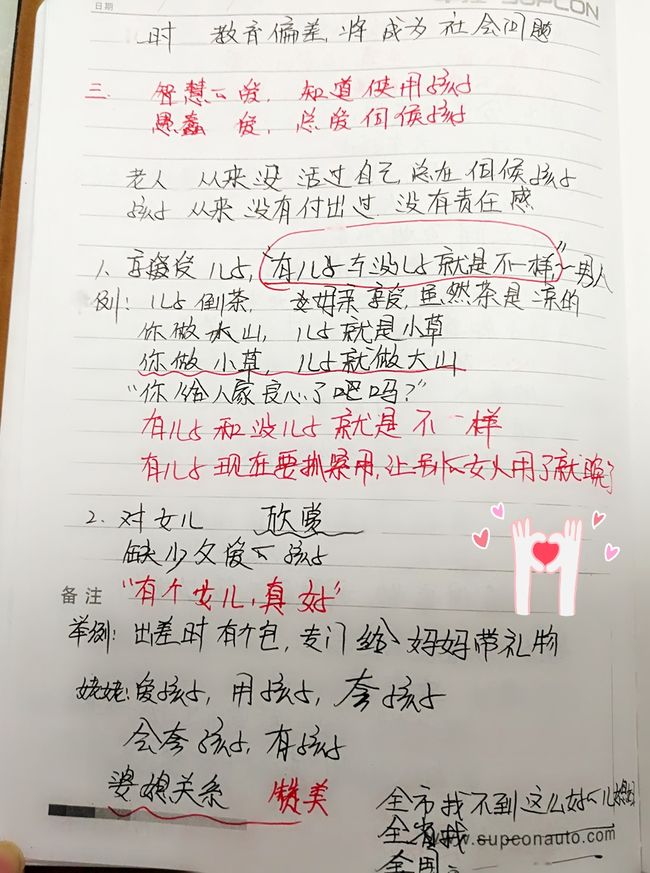 日期
SUPCON
时 教育偏差,将成为社会问题
三. 智慧的爱, 知道使用孩子
愚蠢 爱, 总爱伺候孩子
老人 从来没活过自己,总在伺候孩子
孩子 从来没有付出过 没有责任感
1. 享接受儿子,"有儿子与没儿子就是不一样,"~男人
例: 儿子倒茶, 母亲享受,虽然茶是凉的
你做冰山, 儿子就是小草
你做小草, 儿子就做大山
"你给人家良心了吧吗?"
有儿子和没儿子就是不一样
有儿子现在要抓紧用,让别的女人用了就晚了
2. 对女儿 欣赏
缺少父爱的孩子
备注 "有个女儿,真好"
举例: 出差时有个包, 专门给妈妈带礼物
姥姥: 爱孩子, 用孩子, 夸孩子
会夸孩子, 有孩子
婆媳关系 赞美
全市找不到这么好的儿媳妇
全省找
www.supconauto.com
全国